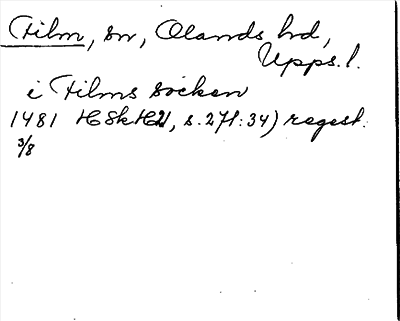 Film, sn, Olands hd,
Upps. l.
i Films socken
1481 HSkH21, s. 271:34) regest.
3/8